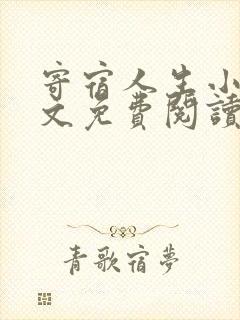 寄宿人生小
文免費閱讀
青歌宿夢